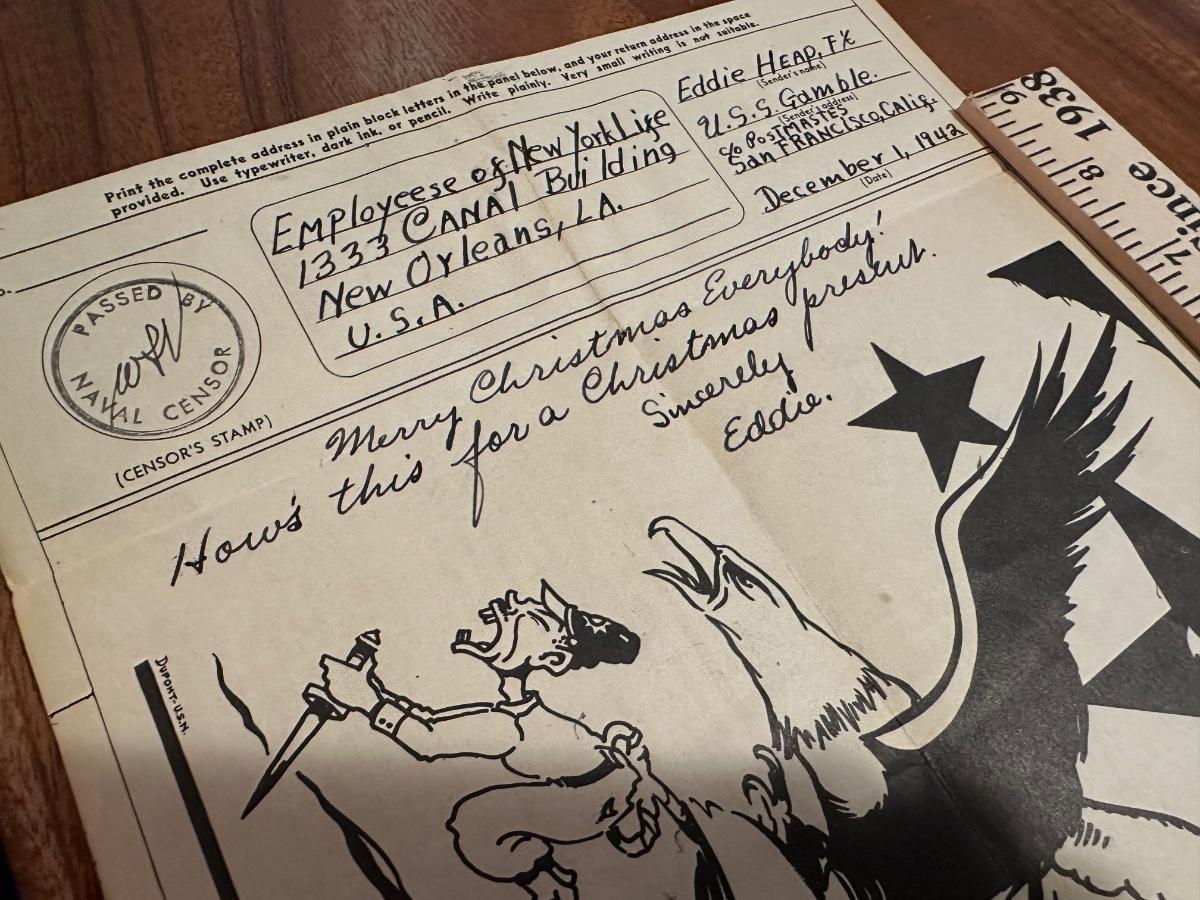 Print the complete address in plain block letters in the panel below, and your return address in the space
provided. Use typewriter, dark ink, or pencil. Write plainly. Very small writing is not suitable.
Employeese of New York Life
1333 CANAl Building
New Orleans, LA.
U.S.A.
Eddie HEAP, F⅔
(Sender's name)
U.S.S. Gamble.
(Sender's address)
c/o POSTMASTES
San FRANCISCO, Calif.
December 1, 1942
(Date)
PASSED BY
NAVAL CENSOR
(CENSOR'S STAMP)
Merry Christmas Everybody!
How's this for a Christmas present.
Sincerely
Eddie.
DUPONT-U.S.N.
1938
ince
9
8
7